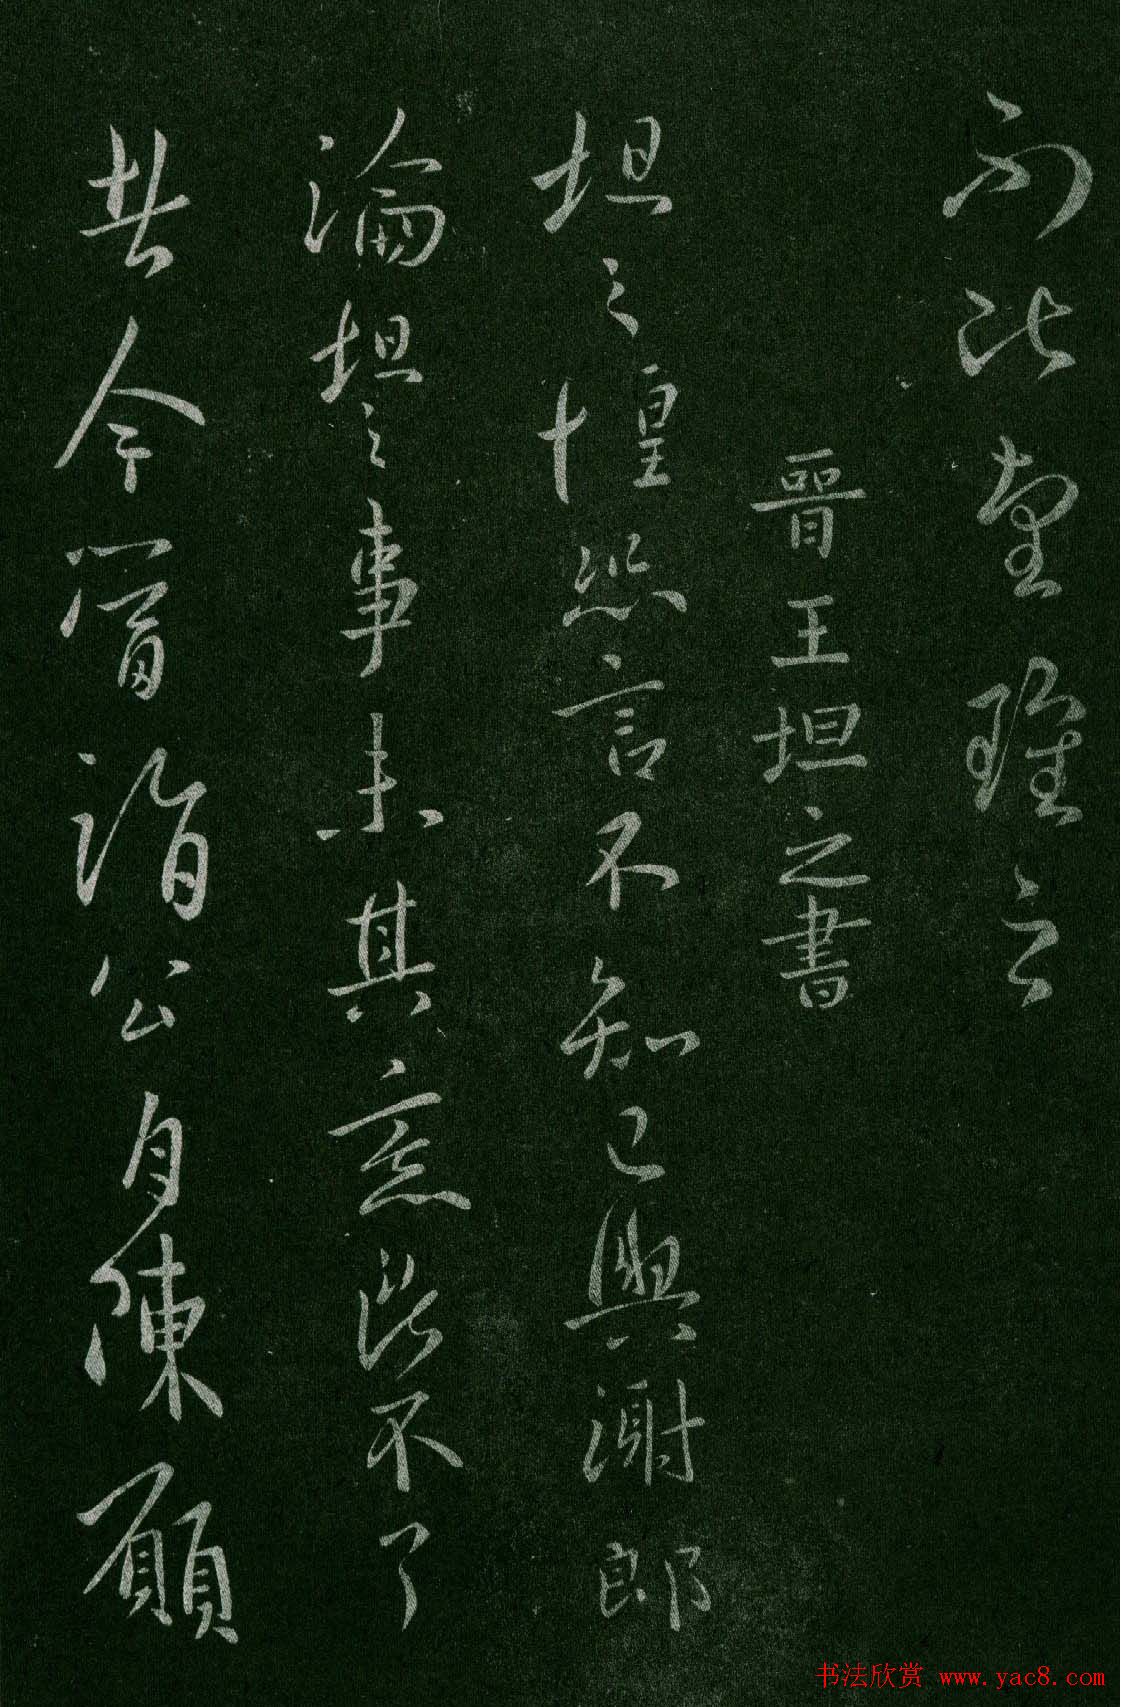 不次望難云
晉王坦之書
坦之惶恐言不知已與謝郎
論坦之事未其意此不了
其今嘗詣公身陳願
书法欣赏 www.yac8.com